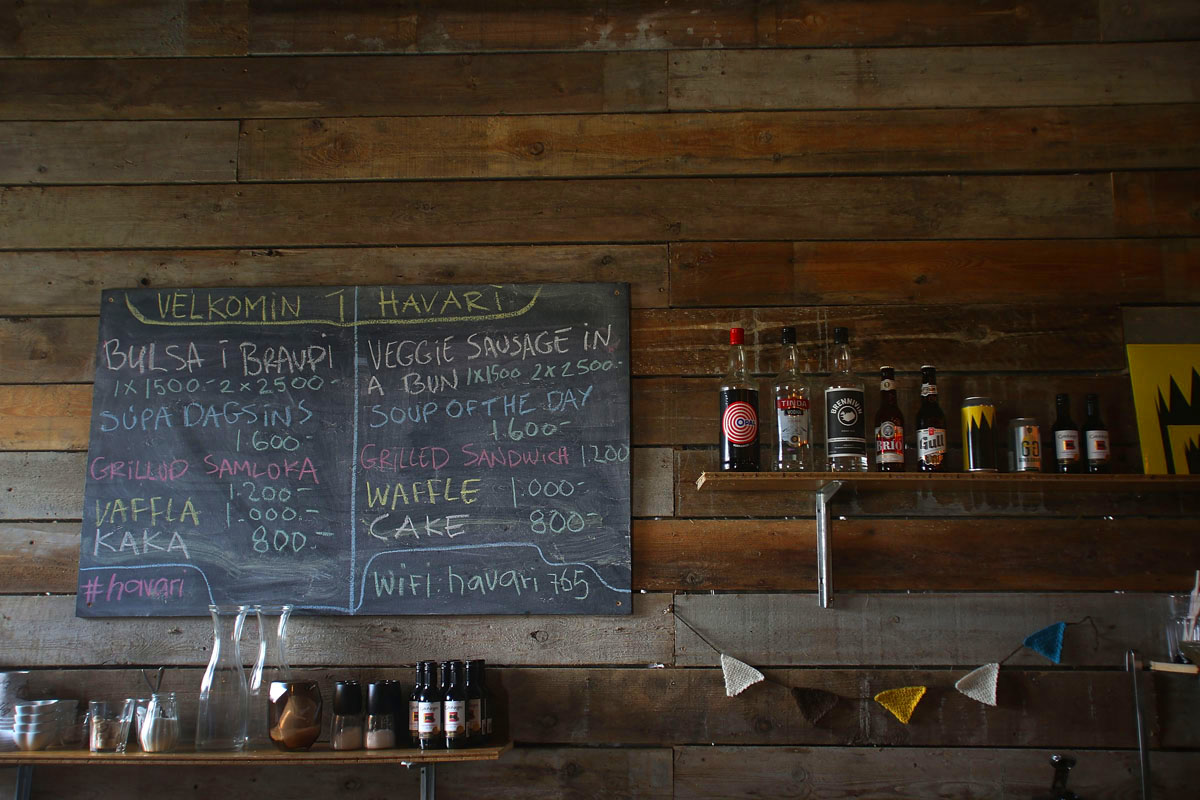 VELKOMIN Í HAVARÍ
BULSA Í BRAUÐI
1X1500.- 2X2500.-
SÚPA DAGSINS
1.600.-
GRILLUÐ SAMLOKA
1.200.-
VAFFLA 1.000.-
KAKA 800.-
#havarí
VEGGIE SAUSAGE IN
A BUN 1X1500 2X2500.-
SOUP OF THE DAY
1.600.-
GRILLED SANDWICH 1.200
WAFFLE 1.000.-
CAKE 800.-
WiFi: havari 765
OPAL
BRENNIVÍN
BRÍÓ
Gull